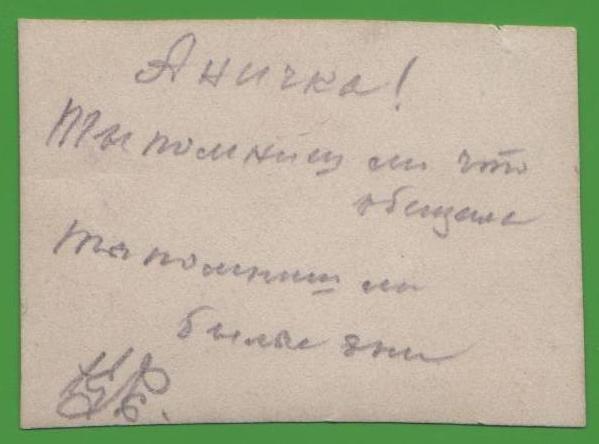 Аничка!
Ты помниш ли что
обещала
Ты помниш ли
былые дни